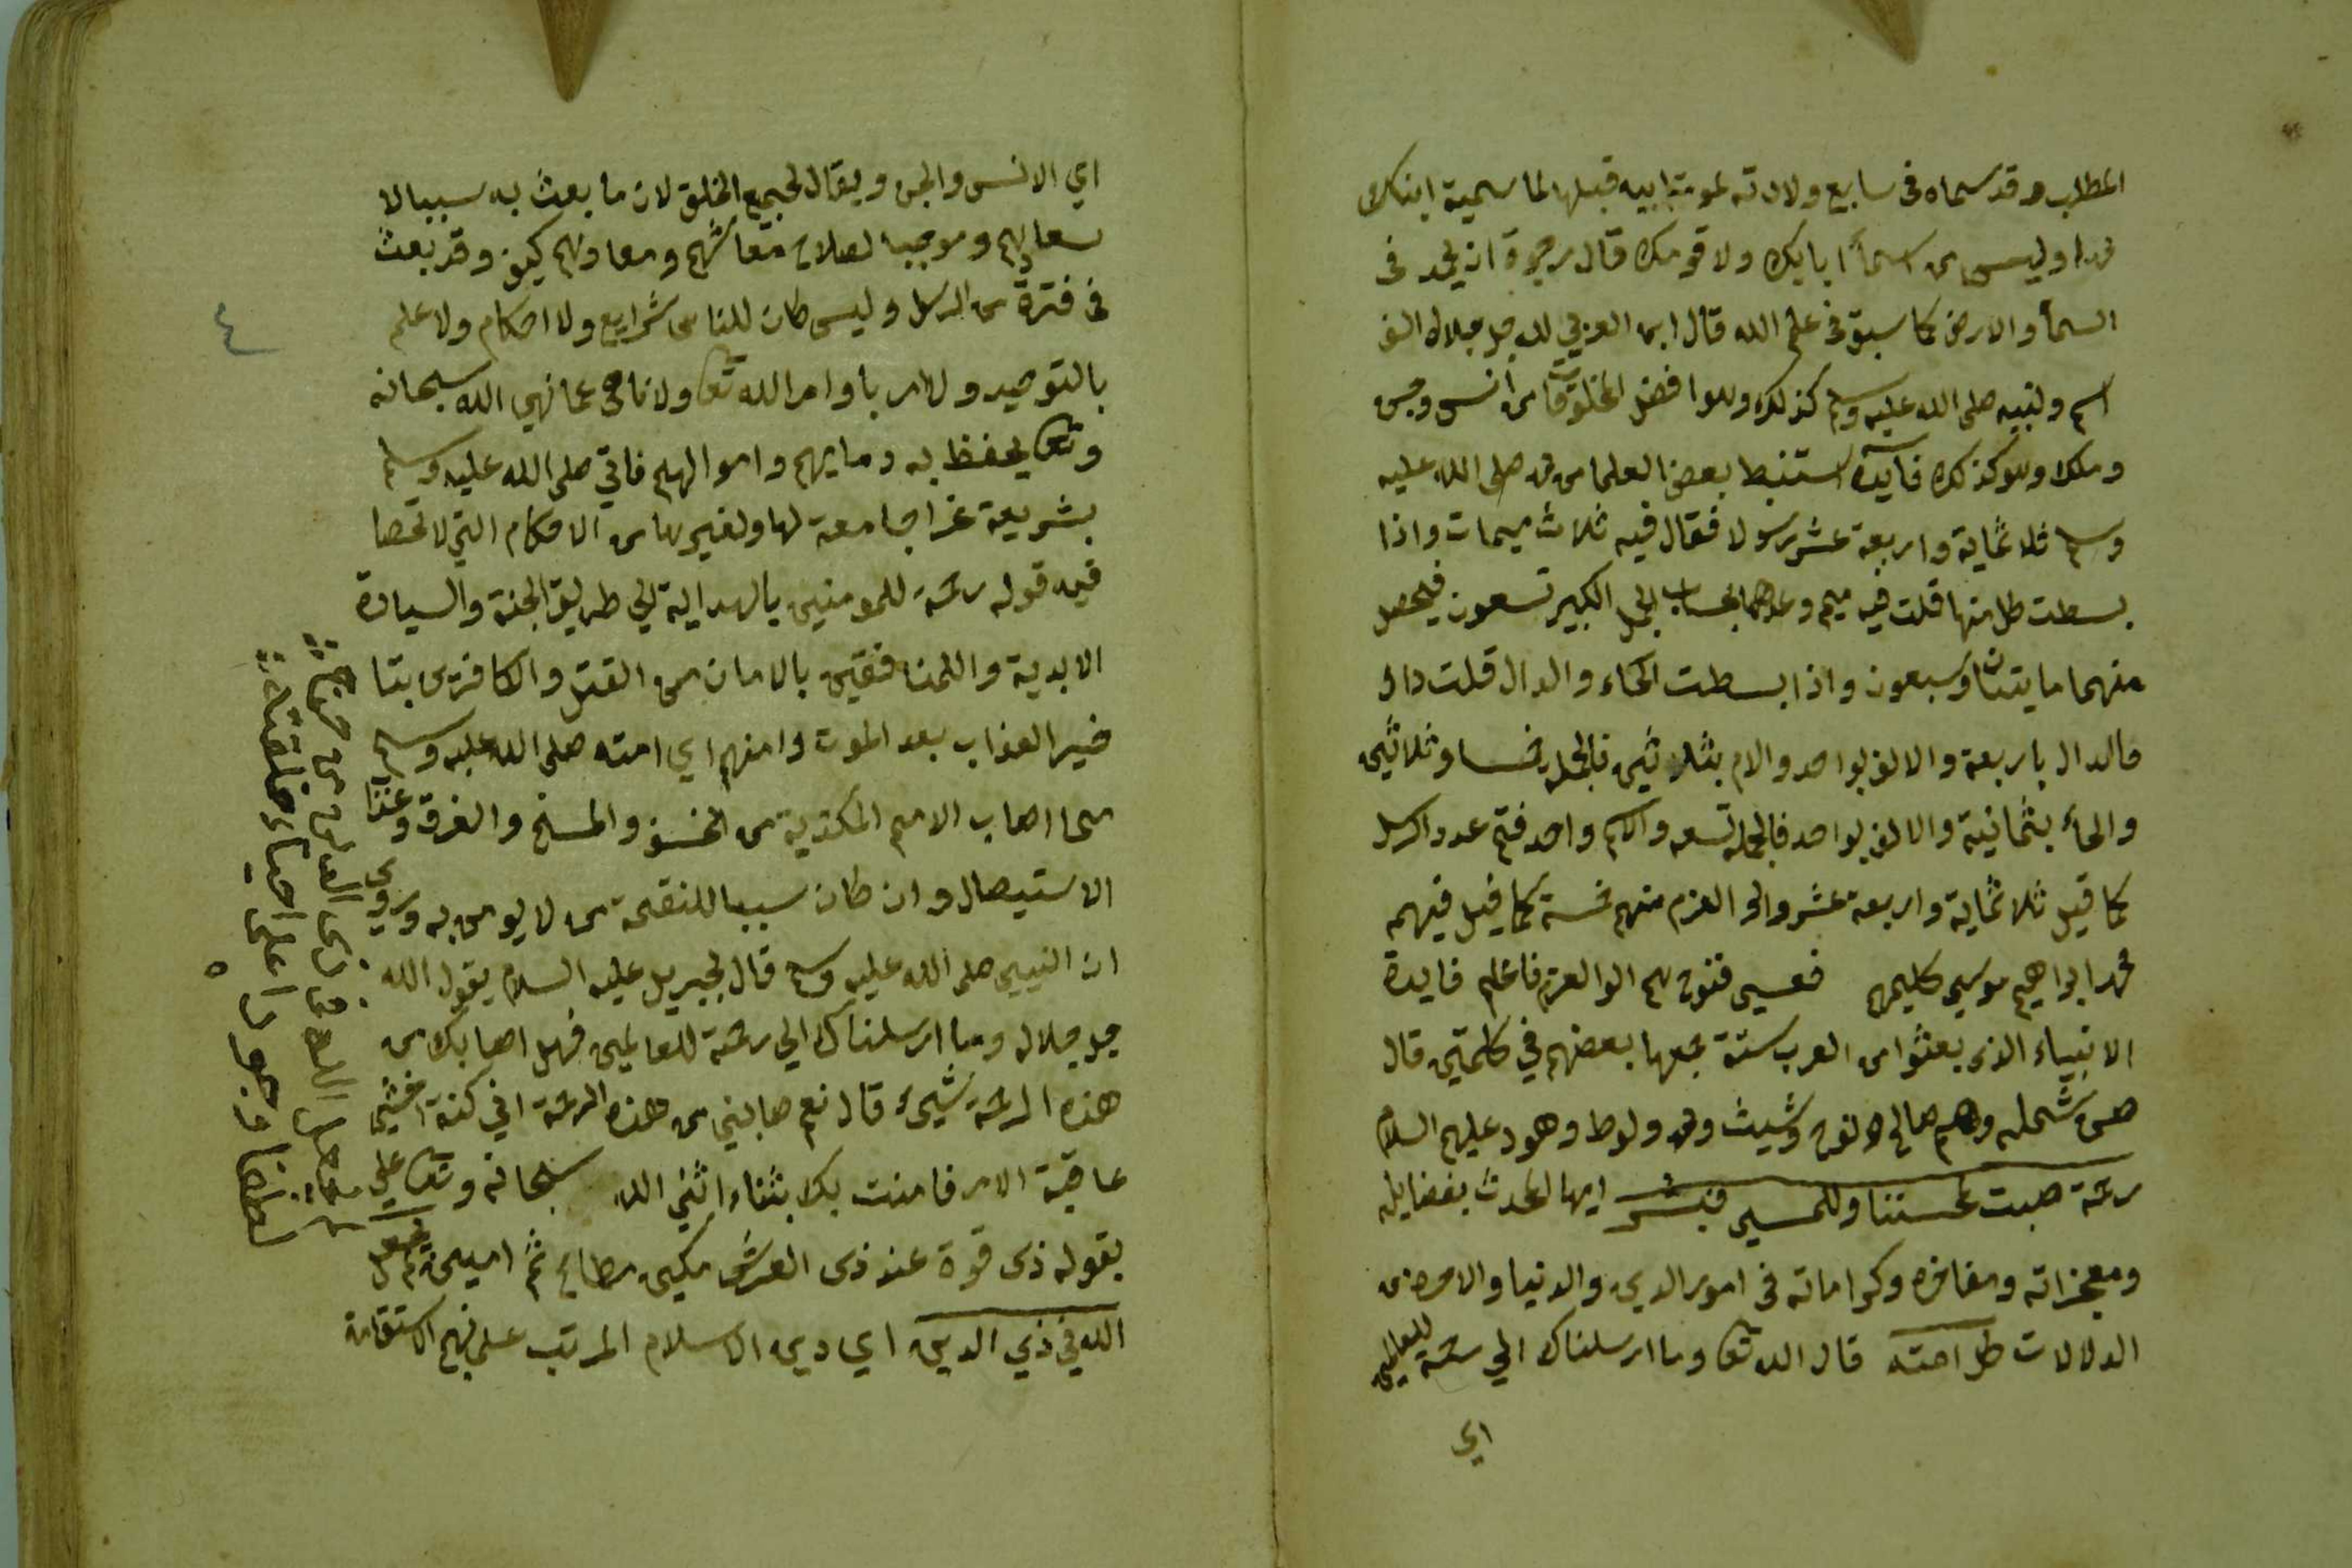 المطلب وقد سماه في سابع ولادته لموت ابيه قبلها لما سمية ابنك
محمدا وليس من اسمأ ابايك ولا قومك قال رجوة ان يحمد في
السمأ والارض كما سبق في علم الله قال ابن العربي لله جل جلاله الف
اسم ولنبيه صلى الله عليه وسلم كذلك وهوا فضل المخلوقات من أنس وجن
وملك وهو كذلك فايدة استنبط بعض العلما من محمد صلى الله عليه
وسلم ثلاثماية واربعة عشر رسولا فقال فيه ثلاث ميمات واذا
بسطت كل منها قلت فيه ميم وعدهما بحساب الجمل الكبير تسعون فيحصل
منهما مايتان وسبعون واذا بسطت الحاء والدال قلت دال
فالدال باربعة والالف بواحد والام بثلاثين فالجمله خمسا وثلاثين
والحأ بثمانية والالف بواحد فالجمله تسعه والاسم واحد فتم عدد الرسل
كما قيل ثلاثماية واربعة عشر والوا العزم منهم خمسة كما قيل فيهم
محمد ابراهيم موسى كليمه فعيسى فنوح هم الوا العزم فاعلم فايدة
الانبياء الذى بعثوا من العرب ستة جمعها بعضهم في كلمتين قال
صن شمله وهم صالح ونوح وشيث ومحمد ولوط وهود عليهم السلام
رحمة صبت لمحسننا وللمسي فبشر ايها المحدث بفضايله
ومعجزاته ومفاخره وكراماته في امور الدين والدنيا والاخرة من
الدلالات كل امته قال الله تعا وما ارسلناك الي رحمة للعالمين
اي
اي الانس والجن ويقال لجميع الخلق لان ما بعث به سببا لا
سعادهم وموجبا لصلاح معاشهم ومعادهم كيف وقد بعث
في فترة من الرسل وليس كان للناس شرايع ولا احكام ولا علم
بالتوحيد ولا امر باوامر الله تعا ولا ناهي عما نهي الله سبحانه
وتعا يحفظ به دمايهم واموالهم فاتي صلى الله عليه وسلم
بشريعة غرا جامعة لها ولغيرها من الاحكام التي لا تحصا
قيد قوله رحمة للمومنين بالهداية الي طريق الجنة والسيادة
الابدية وللمنافقين بالامان من القتل والكافرين بتا
خير العذاب بعد الموت وامنهم اي امته صلى الله عليه وسلم
مما اصاب الامم المكذبة من الخسف والمسخ والغرق وعذاب
الاستيصال وان كان سببا للنقمة من لا يومن به وروي
ان النبيي صلى الله عليه وسلم قال لجبريل عليه السلام يقول الله
جل جلاله وما ارسلناك الي رحمة للعالمين فهل اصابك من
هذه الرحمة شيء قال نعم اصابني من هذه الرحمة اني كنة اخشي
عاقبة الامر فامنت بك بثناء اثني الله سبحانه وتعا علي
بقوله ذى قوة عند ذى العرش مكين مطاع ثم امين
الله في ذي الدين اي دين الاسلام المرتب على نهج الاستقامة
٤